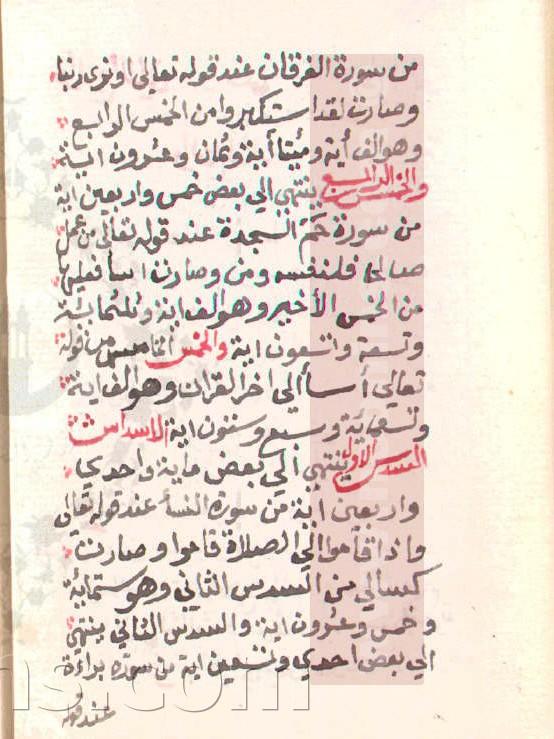 من سورة الفرقان عند قوله تعالى او نرى ربنا
وصارت لقد استكبروا من الخمس الرابع
وهو الف أية ومئتا أية وثمان وعشرون اية
والخمس الرابع ينتهي الي بعض خمس واربعين اية
من سورة حم السجدة عند قوله تعالى من عمل
صالحا فلنفسه ومن وصارت اسا فعليها
من الخمس الأخير وهو الف اية وثلثمائة
وتسعة وتسعون اية والخمس الخامس من قوله
تعالى أسا الى اخر القران وهو الف اية
وتسعمائة وسبع وستون اية الاسداس
السدس الاول ينتهي الي بعض ماية واحدي
واربعين اية من سورة النسأ عند قوله تعالي
واذا قاموا الي الصلاة قاموا وصارت
كسالي من السدس الثاني وهو ستمائة
وخمس وعشرون اية والسدس الثاني ينتهي
الي بعض احدي وتسعين اية من سورة براءة
عند قوله
ns.com